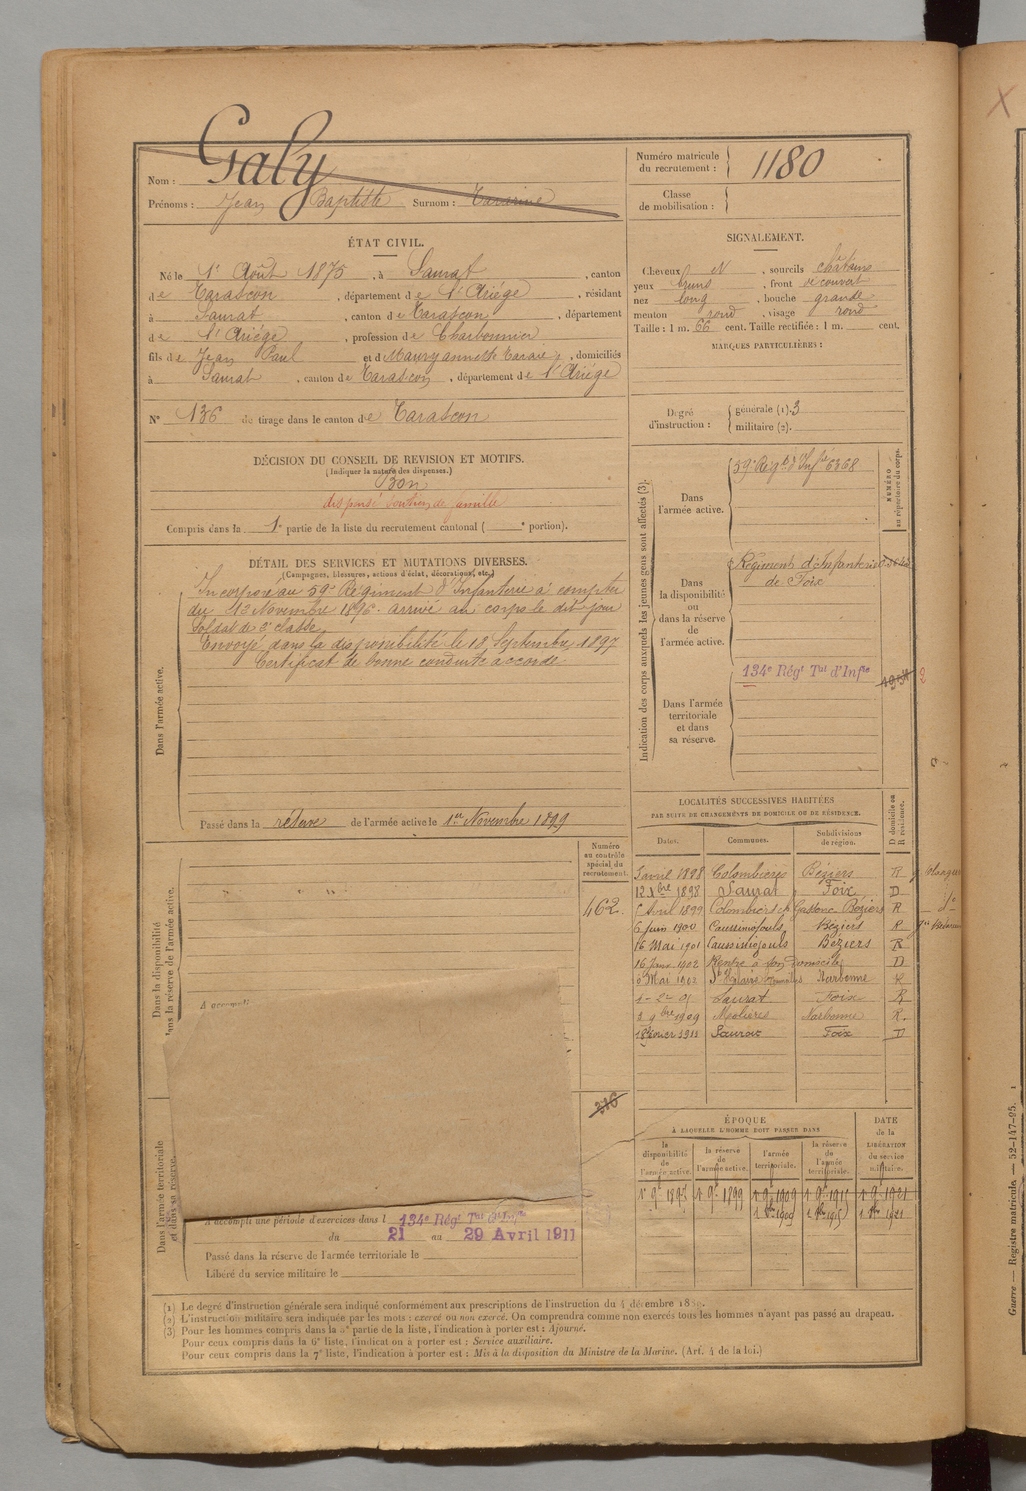 Nom : Galy
Prénoms : Jean Baptiste Surnom :
Numéro matricule du recrutement : 1180
Classe de mobilisation :
ÉTAT CIVIL.
Né le 1er Août 1875, à Saurat, canton
de Tarascon, département de l'Ariége, résidant
à Saurat, canton de Tarascon, département
de l'Ariége, profession de Charbonnier
fils de Jean Paul et de Maury annette, domiciliés
à Saurat, canton de Tarascon, département de l'Ariége
N° 136 de tirage dans le canton de Tarascon
SIGNALEMENT.
Cheveux N, sourcils châtains
yeux bruns, front découvert
nez long, bouche grande
menton rond, visage rond
Taille : 1 m. 66 cent. Taille rectifiée : 1 m. cent.
MARQUES PARTICULIÈRES :
Degré d'instruction : générale (1). 3
militaire (2).
DÉCISION DU CONSEIL DE REVISION ET MOTIFS.
(Indiquer la nature des dispenses.)
Bon
dispensé soutien de famille
Compris dans la 1e partie de la liste du recrutement cantonal ( portion).
DÉTAIL DES SERVICES ET MUTATIONS DIVERSES.
(Campagnes, blessures, actions d'éclat, décorations, etc.)
Incorporé au 59e Régiment d'Infanterie à compter
du 12 Novembre 1896. arrivé au corps le dit jour
Soldat de 2e classe
Envoyé dans la disponibilité le 18 Septembre 1897
Certificat de bonne conduite accordé.
Dans l'armée active.
Passé dans la réserve de l'armée active le 1er Novembre 1899
Indication des corps auxquels les jeunes gens sont affectés (3).
NUMÉRO au répertoire du corps.
Dans l'armée active.
59e Régt d'Infrie 6368
Dans la disponibilité ou dans la réserve de l'armée active.
Régiment d'Infanterie
de Foix
Dans l'armée territoriale et dans sa réserve.
134e Régt Tal d'Infie
LOCALITÉS SUCCESSIVES HABITÉES
PAR SUITE DE CHANGEMENTS DE DOMICILE OU DE RÉSIDENCE.
Dates. Communes. Subdivisions de région. D domicile ou R résidence.
5 avril 1898 Colombières Béziers R
12 Xbre 1898 Saurat Foix D
Avril 1899 Béziers R
6 juin 1900 Caussiniojouls Béziers R
16 Mai 1901 Caussiniojouls Béziers R
16 Janv. 1902 Rentré à son domicile D
Mai 1902 Narbonne R
Saurat Foix R
3 9bre 1909 Molières Narbonne R.
1911 Saurat Foix D
Dans la disponibilité ou dans la réserve de l'armée active.
Numéro au contrôle spécial du recrutement.
462.
A accompli
316
Dans l'armée territoriale et dans sa réserve.
A accompli une période d'exercices dans l 134e Régt Tal d'Infie
du 21 au 29 Avril 1911
Passé dans la réserve de l'armée territoriale le
Libéré du service militaire le
ÉPOQUE
À LAQUELLE L'HOMME DOIT PASSER DANS
DATE de la LIBÉRATION du service militaire.
la disponibilité de l'armée active. la réserve de l'armée active. l'armée territoriale. la réserve de l'armée territoriale.
(1) Le degré d'instruction générale sera indiqué conformément aux prescriptions de l'instruction du 4 décembre
(2) L'instruction militaire sera indiquée par les mots : exercé ou non exercé. On comprendra comme non exercés tous les hommes n'ayant pas passé au drapeau.
(3) Pour les hommes compris dans la 5e partie de la liste, l'indication à porter est : Ajourné.
Pour ceux compris dans la 6e liste, l'indication à porter est : Service auxiliaire.
Pour ceux compris dans la 7e liste, l'indication à porter est : Mis à la disposition du Ministre de la Marine. (Art. 4 de la loi.)
Guerre — Registre matricule. — 52-147-25.